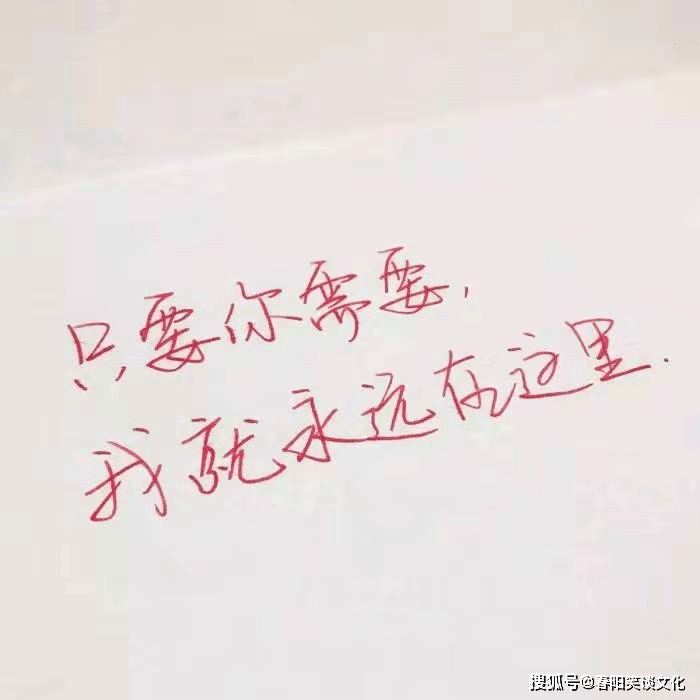 只要你需要,
我就永远在这里.
搜狐号@春阳笑谈文化